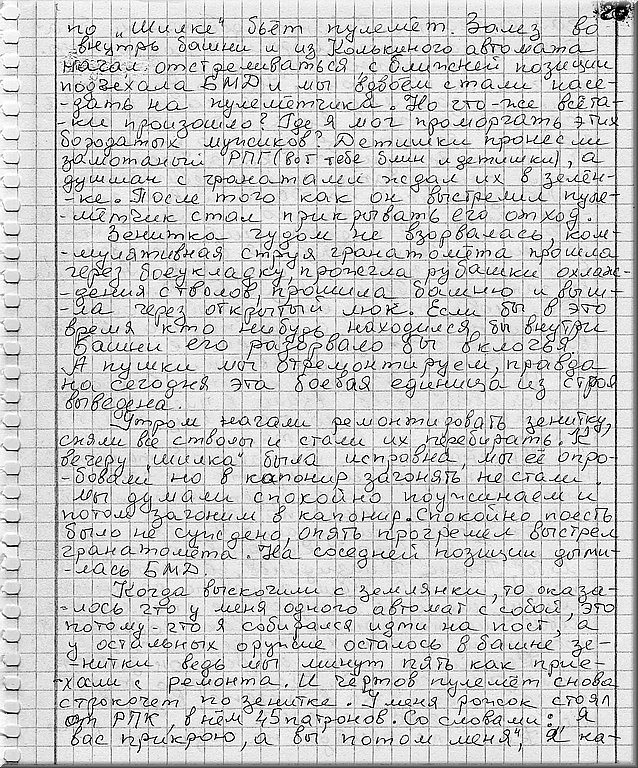 20
по „Шилке" бьёт пулемёт. Залез во
внутрь башни и из Колькиного автомата
начал отстреливаться, с ближней позиции
подъехала БМД и мы вдвоём стали насе-
-дать на пулемётчика. Но что-же всё та-
-ки произошло? Где я мог проморгать этих
бородатых мужиков? Детишки пронесли
замотаный РПГ (вот тебе блин и детишки), а
душман с гранатами ждал их в зелён-
-ке. После того как он выстрелил пуле-
-мётчик стал прикрывать его отход.
Зенитка чудом не взорвалась, ком-
-мулятивная струя гранатомёта прошла
через боеукладку, прожгла рубашки охлаж-
-дения стволов, прошила башню и выш-
-ла через открытый люк. Если бы в это
время кто нибудь находился бы внутри
башни его разорвало бы в клочья.
А пушки мы отремонтируем, правда
на сегодня эта боевая единица из строя
выведена.
Утром начали ремонтировать зенитку,
сняли все стволы и стали их перебирать. К
вечеру „шилка" была исправна, мы её опро-
-бовали но в капонир загонять не стали.
Мы думали спокойно поужинаем и
потом загоним в капонир. Спокойно поесть
было не суждено, опять прогремел выстрел
гранатомёта. На соседней позиции дыми-
-лась БМД.
Когда выскочили с землянки, то оказа-
-лось что у меня одного автомат с собой, это
потому что я собирался идти на пост, а
у остальных оружие осталось в башне зе-
-нитки ведь мы минут пять как прие-
-хали с ремонта. И чёртов пулемёт снова
строкочет по зенитке. У меня рожок стоял
от РПК, в нём 45 патронов. Со словами: „Я
вас прикрою, а вы потом меня", я на-